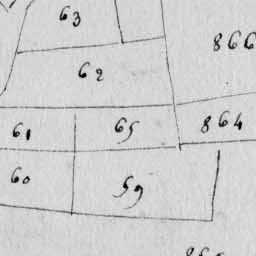 63
866
62
61 65 864
60 59